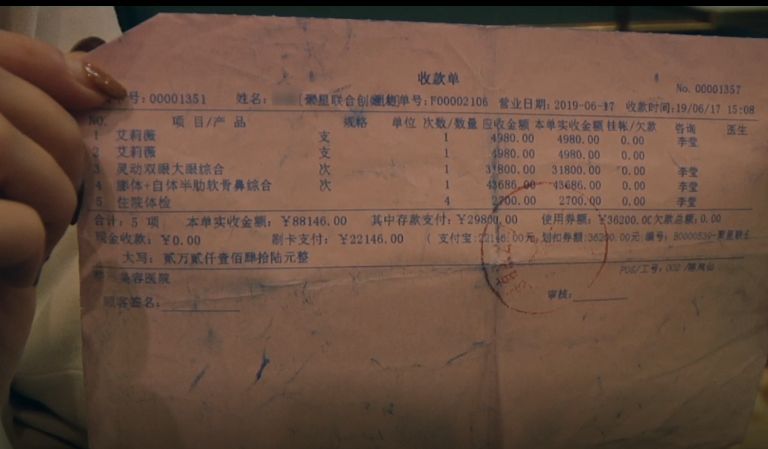 收款单
No. 00001357
号:00001351 姓名: 聚星联合创 单号:F00002106 营业日期:2019-06-17 收款时间:19/06/17 15:08
NO. 项 目/产 品 规格 单位 次数/数量 应收金额 本单实收金额 挂帐/欠款 咨询 医生
1 艾莉薇 支 1 4980.00 4980.00 0.00 李莹
2 艾莉薇 支 1 4980.00 4980.00 0.00
3 灵动双眼大眼综合 次 1 31800.00 31800.00 0.00 李莹
4 膨体+自体半肋软骨鼻综合 次 1 43686.00 43686.00 0.00 李莹
5 住院体检 4 2700.00 2700.00 0.00 李莹
合计: 5 项 本单实收金额: ¥88146.00 其中存款支付: ¥29800.00 使用券额: ¥36200.00 欠款总额: 0.00
现金收款: ¥0.00 刷卡支付: ¥22146.00 ( 支付宝:22146.00元, 划扣券额:36200.00元 编号: B0000539-聚星联合
大写: 贰万贰仟壹佰肆拾陆元整
POS/工号: 002
美容医院
顾客签名: 审核: